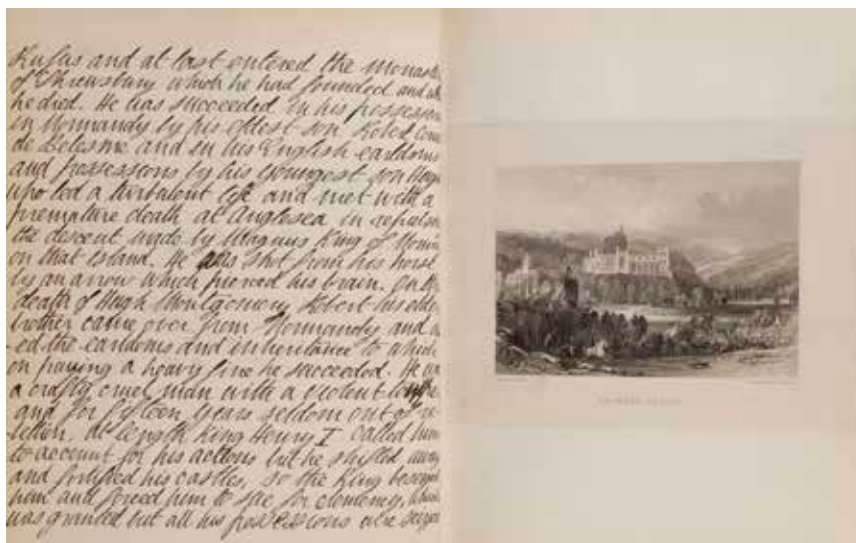 Rufus and at last entered the monast
of Shrewsbury which he had founded and
he died. He was succeeded in his possession
in Normandy by his eldest son Robert Com
de Belesme and in his English earldoms
and possessions by his youngest son Hugh
who led a turbulent life and met with a
premature death at Anglesea in repulsin
the descent made by Magnus King of Norw
on that island. He was shot from his horse
by an arrow which pierced his brain. On the
death of Hugh Montgomery Robert his elder
brother came over from Normandy and
-ed the earldoms and inheritance to which
on paying a heavy fine he succeeded. He wa
a crafty cruel man with a violent temper
and for fifteen years seldom out of re
-bellion. At length King Henry I called him
to account for his actions but he shifted away
and fortified his castles, so the King besieged
him and forced him to sue for clemency, which
was granted but all his possessions were seized